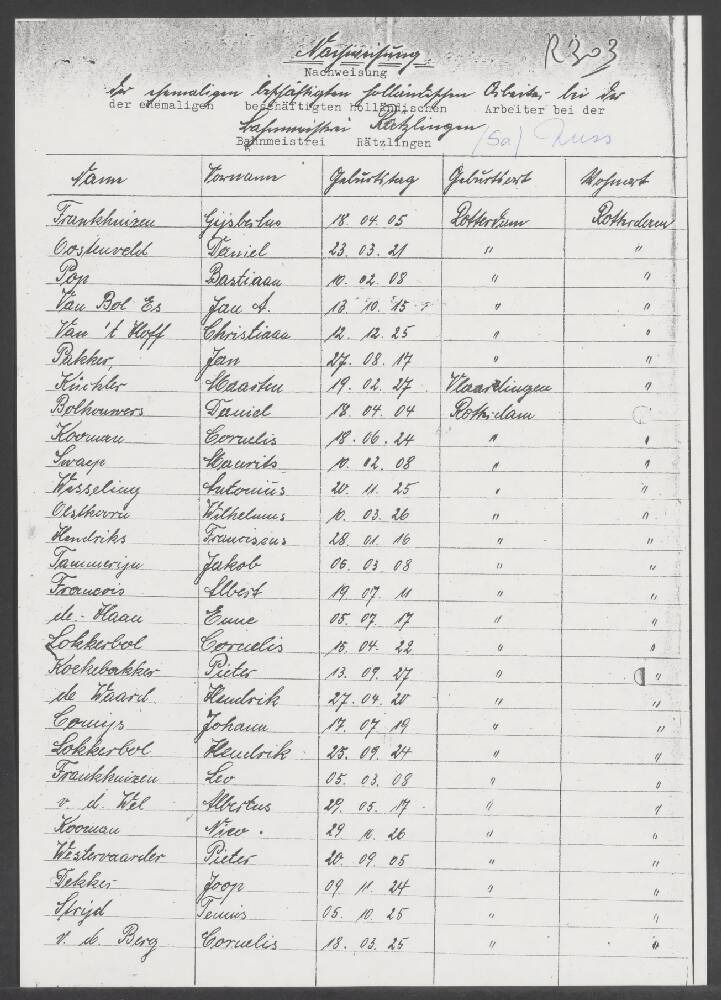 Nachweisung R303
Nachweisung
der ehemaligen beschäftigten holländischen Arbeiter bei der
der ehemaligen beschäftigten holländischen Arbeiter bei der
Bahnmeistrei Rätzlingen
(Sa) Russ
Bahnmeistrei Rätzlingen
Name Vorname Geburtstag Geburtsort Wohnort
Frankhuizen Gijsbertus 18. 04. 05 Rotterdam Rotterdam
Oostenveld Daniel 23. 03. 21 " "
Pop Bastiaan 10. 02. 08 " "
Van Bol Es Jan A. 13. 10. 15 " "
Van 't Hoff Christiaan 12. 12. 25 " "
Bakker, Jan 27. 08. 17 " "
Küchler Maarten 19. 02. 27 Vlaardingen "
Bolhouwers Daniel 18. 04. 04 Rotterdam
Kooman Cornelis 18. 06. 24 " "
Swaep Maurits 10. 02. 08 " "
Wesseling Antonius 20. 11. 25 " "
Olsthoorn Wilhelmus 10. 03. 26 " "
Hendriks Franciscus 28. 01. 16 " "
Tammerijn Jakob 06. 03 08 " "
Francois Albert 19. 07. 11 " "
de - Haan Enne 05. 07. 17 " "
Lokkerbol Cornelis 15. 04. 22 " "
Koekebakker Pieter 13. 09. 27 " "
de Waard Hendrik 27. 04. 20 " "
Comijs Johann 17. 07 19 " "
Lokkerbol Hendrik 25. 09. 24 " "
Frankhuizen Leo 05. 03. 08 " "
v. d. Wel Albertus 29. 05. 17. " "
Kooman Nico. 29 10. 26 " "
Westervaarder Pieter 20. 09. 05 " "
Dekker Joop 09 11. 24 " "
Strijd Teunis 05. 10. 25 " "
v. d. Berg Cornelis 18. 03. 25 " "